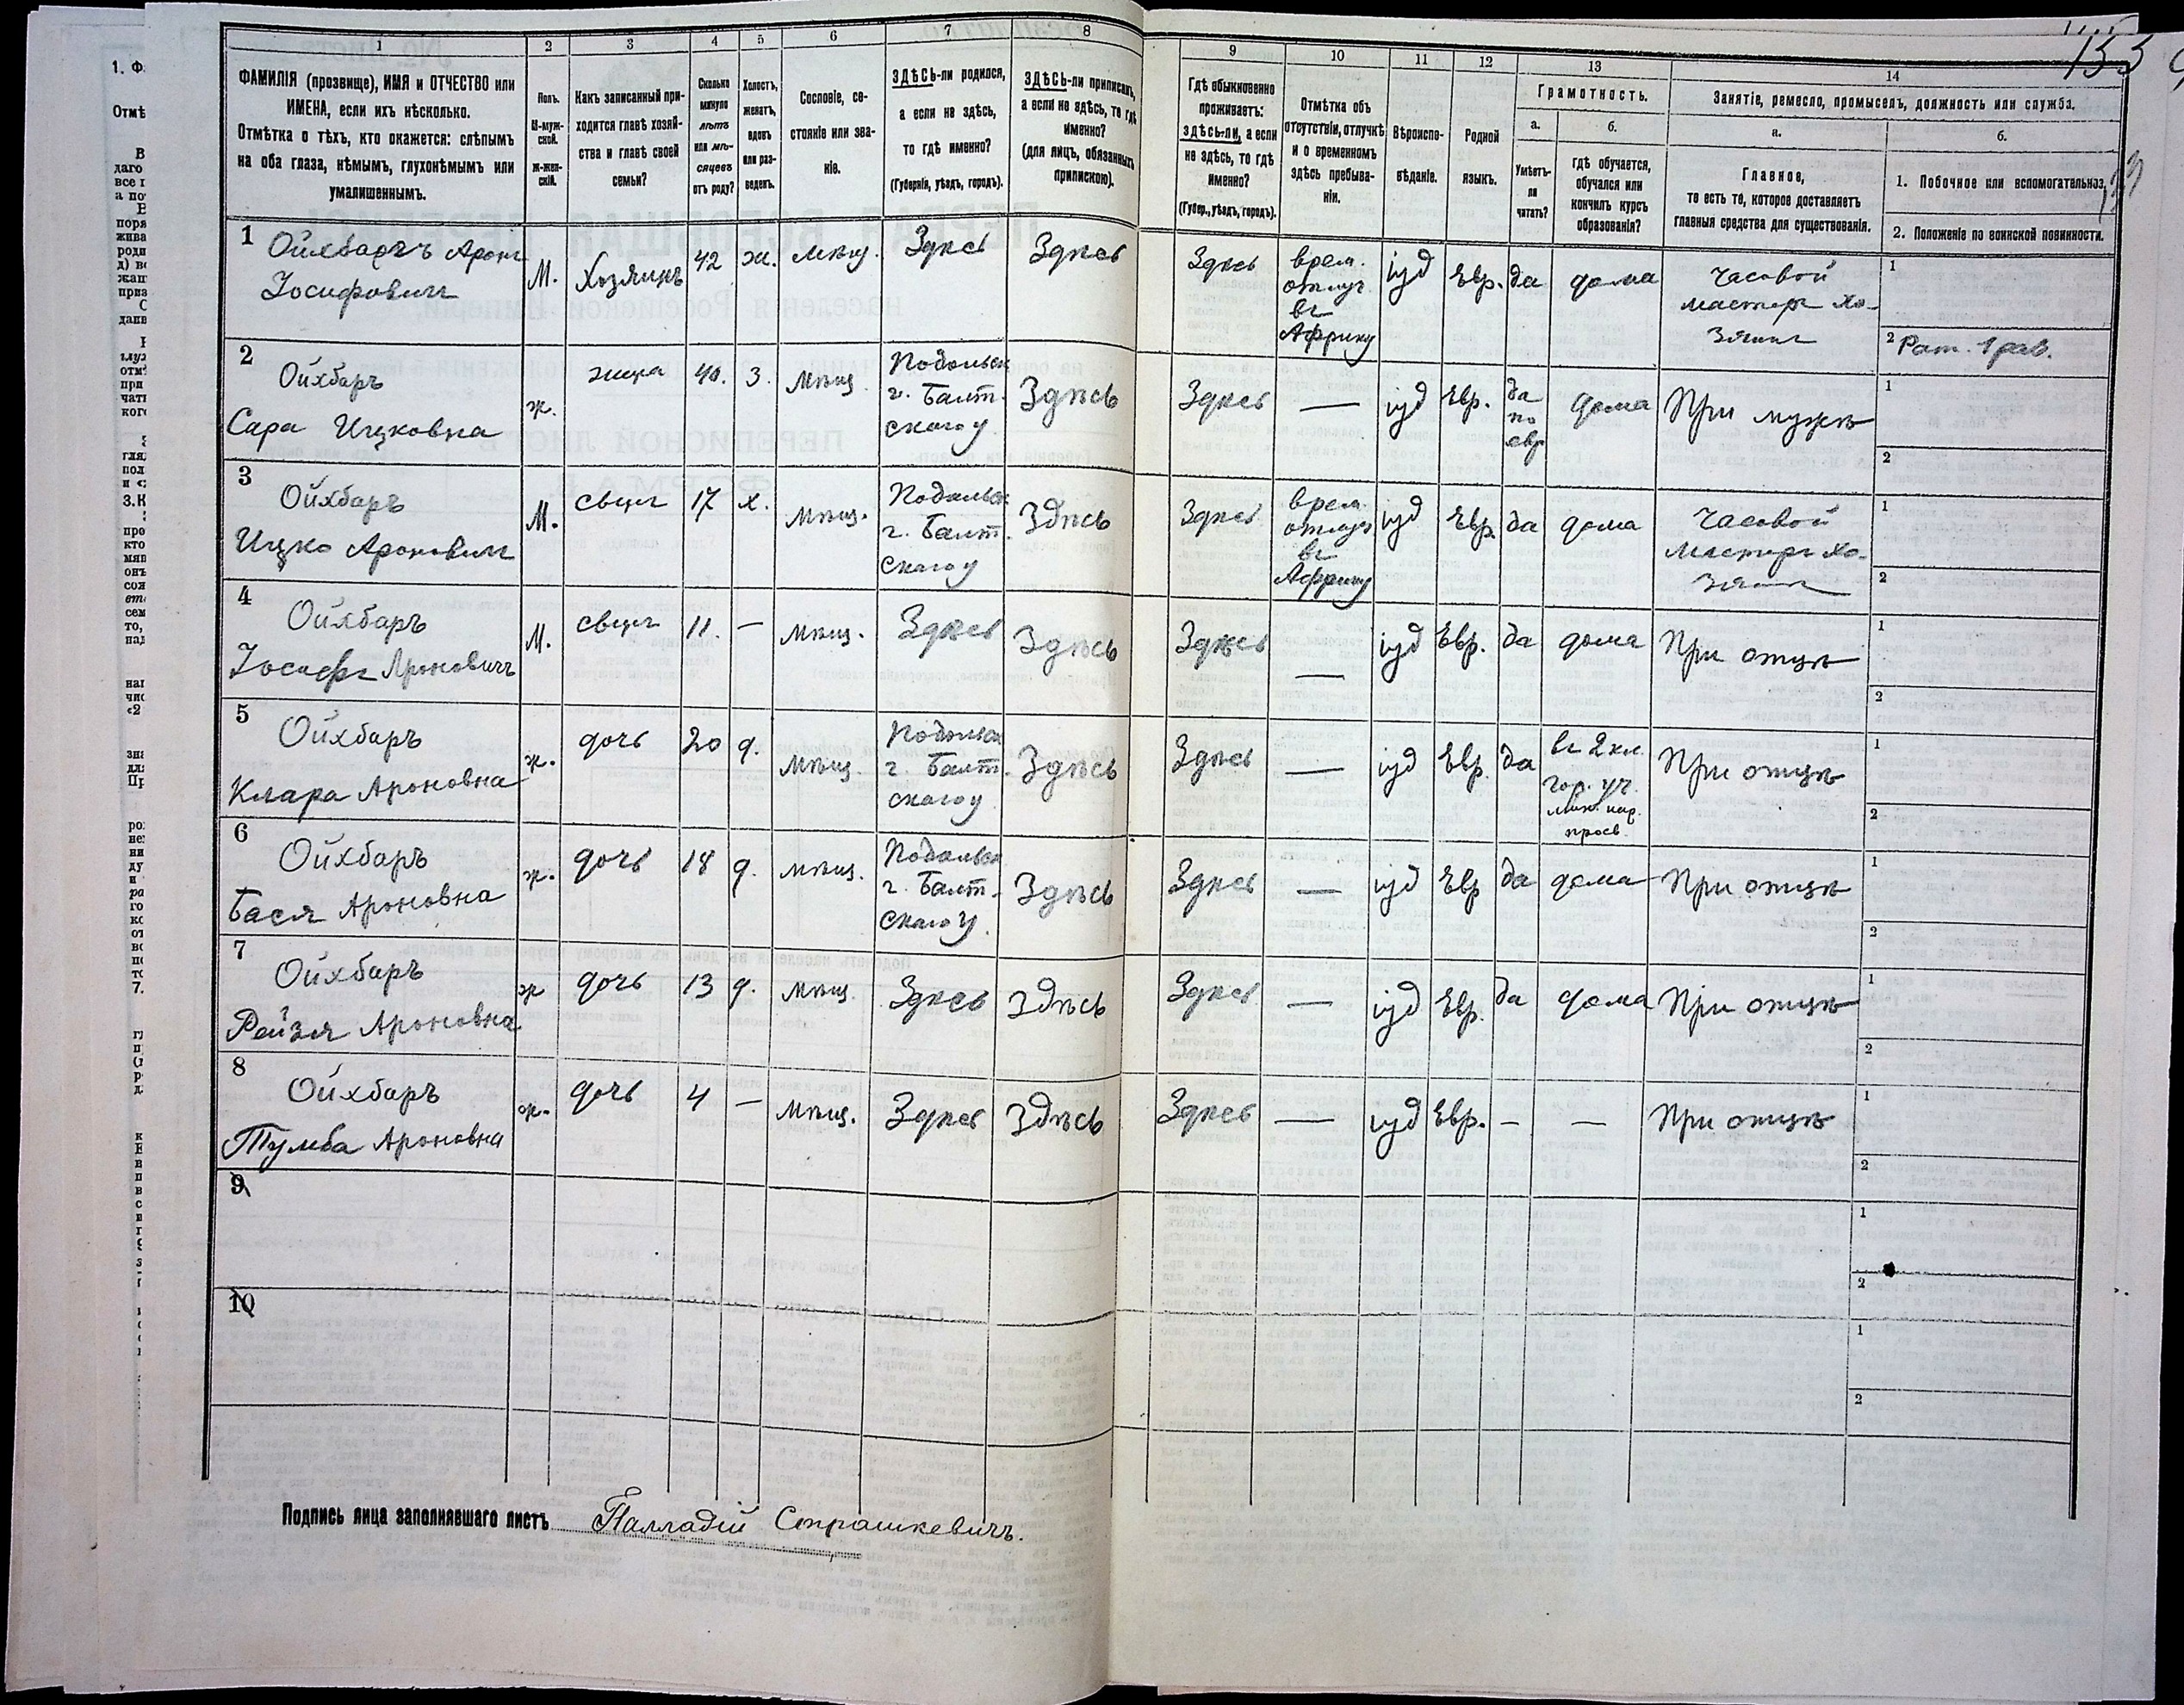 1 2 3 4 5 6 7 8 9 10 11 12 13 14
ФАМИЛІЯ (прозвище), ИМЯ и ОТЧЕСТВО или
ИМЕНА, если ихъ нѣсколько.
Отмѣтка о тѣхъ, кто окажется: слѣпымъ
на оба глаза, нѣмымъ, глухонѣмымъ или
умалишеннымъ.
Полъ.
М-муж-
ской.
Ж-жен-
скій.
Какъ записанный при-
ходится главѣ хозяй-
ства и главѣ своей
семьи?
Сколько
минуло
лѣтъ
или мѣ-
сяцевъ
отъ роду?
Холостъ,
женатъ,
вдовъ
или раз-
веденъ.
Сословіе, со-
стояніе или зва-
ніе.
ЗДѢСЬ-ли родился,
а если не здѣсь,
то гдѣ именно?
(Губернія, уѣздъ, городъ).
ЗДѢСЬ-ли приписанъ,
а если не здѣсь, то гдѣ
именно?
(для лицъ, обязанныхъ
припискою).
Гдѣ обыкновенно
проживаетъ:
здѣсь-ли, а если
не здѣсь, то гдѣ
именно?
(Губер., уѣздъ, городъ).
Отмѣтка объ
отсутствіи, отлучкѣ
и о временномъ
здѣсь пребыва-
ніи.
Вѣроиспо-
вѣданіе.
Родной
языкъ.
Грамотность.
а.
Умѣетъ-
ли
читать?
б.
гдѣ обучается,
обучался или
кончилъ курсъ
образованія?
Занятіе, ремесло, промыселъ, должность или служба.
а.
Главное,
то есть то, которое доставляетъ
главныя средства для существованія.
б.
1. Побочное или вспомогательное.
2. Положеніе по воинской повинности.
155
1 Ойхбаръ Аронъ
Іосифовичъ
М. Хозяинъ 42 ж. мѣщ. Здѣсь Здѣсь Здѣсь
врем.
отлуч.
въ
Африку
іуд Евр. да дома
Часовой
мастеръ хо-
зяинъ
1
2 Рат. 1 раз.
2 Ойхбаръ
Сара Ицковна
ж. жена 40. З. мѣщ.
Подольск
г. Балт.
скаго у
Здѣсь Здѣсь — іуд Евр.
да
по
евр
дома При мужѣ
1
2
3 Ойхбаръ
Ицко Ароновичъ
М. сынъ 17 х. мѣщ.
Подольск
г. Балт.
скаго у
Здѣсь Здѣсь
врем.
отлуч
въ
Африку
іуд Евр. да дома
Часовой
мастеръ хо-
зяинъ
1
2
4 Ойхбаръ
Іосифъ Ароновичъ
М. сынъ 11. — мѣщ. Здѣсь Здѣсь Здѣсь — іуд Евр. да дома При отцѣ
1
2
5 Ойхбаръ
Клара Ароновна
ж. дочь 20 д. мѣщ.
Подольск
г. Балт.
скаго у
Здѣсь Здѣсь — іуд Евр. да
въ 2 кл.
гор. уч.
мин. нар.
просв.
При отцѣ
1
2
6 Ойхбаръ
Бася Ароновна
ж. дочь 18 д. мѣщ.
Подольск
г. Балт.
скаго у.
Здѣсь Здѣсь — іуд Евр да дома При отцѣ
1
2
7 Ойхбаръ
Рейзя Ароновна
ж дочь 13 д. мѣщ. Здѣсь Здѣсь Здѣсь — іуд Евр. да дома При отцѣ
1
2
8 Ойхбаръ
Тумба Ароновна
ж. дочь 4 — мѣщ. Здѣсь Здѣсь Здѣсь — іуд Евр. — — При отцѣ
1
2
9
1
2
10
1
2
Подпись лица заполнявшаго листъ Палладій Страшкевичъ.